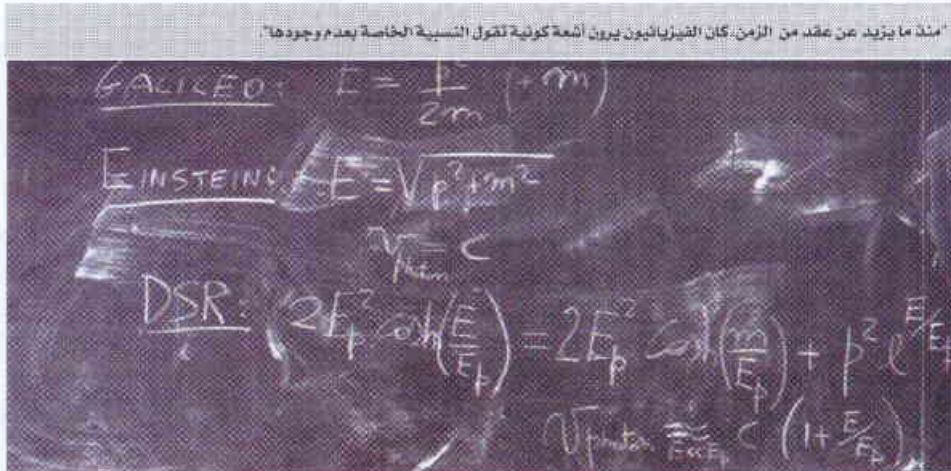 "منذ ما يزيد عن عقد من الزمن. كان الفيزيائيون يرون أشعة كونية تقول النسبية الخاصة بعدم وجودها".
GALILEO: E = p²/2m (+m)
EINSTEIN: E = √p²+m²
= c
DSR: 2E_p² cosh(E/E_p) = 2E_p² cosh(m/E_p) + p² e^E/E_p
V_photon ≈ E≪E_p c (1 + E/E_p)